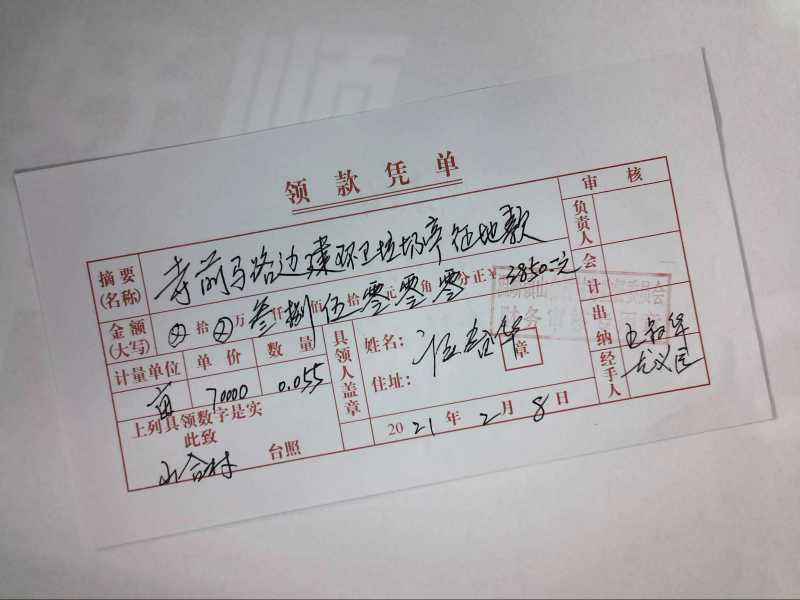 领款凭单
审核
摘要(名称) 寺前马路边建环卫垃圾亭征地款
负责人
金额(大写) ⊗拾⊗万叁仟捌佰伍拾零元零角零分正¥3850.元
会计
财务审核
计量单位 单价 数量
亩 70000 0.055
具领人盖章
姓名:
章
住址:
出纳
经手人
上列具领数字是实
此致
台照
2021年2月8日